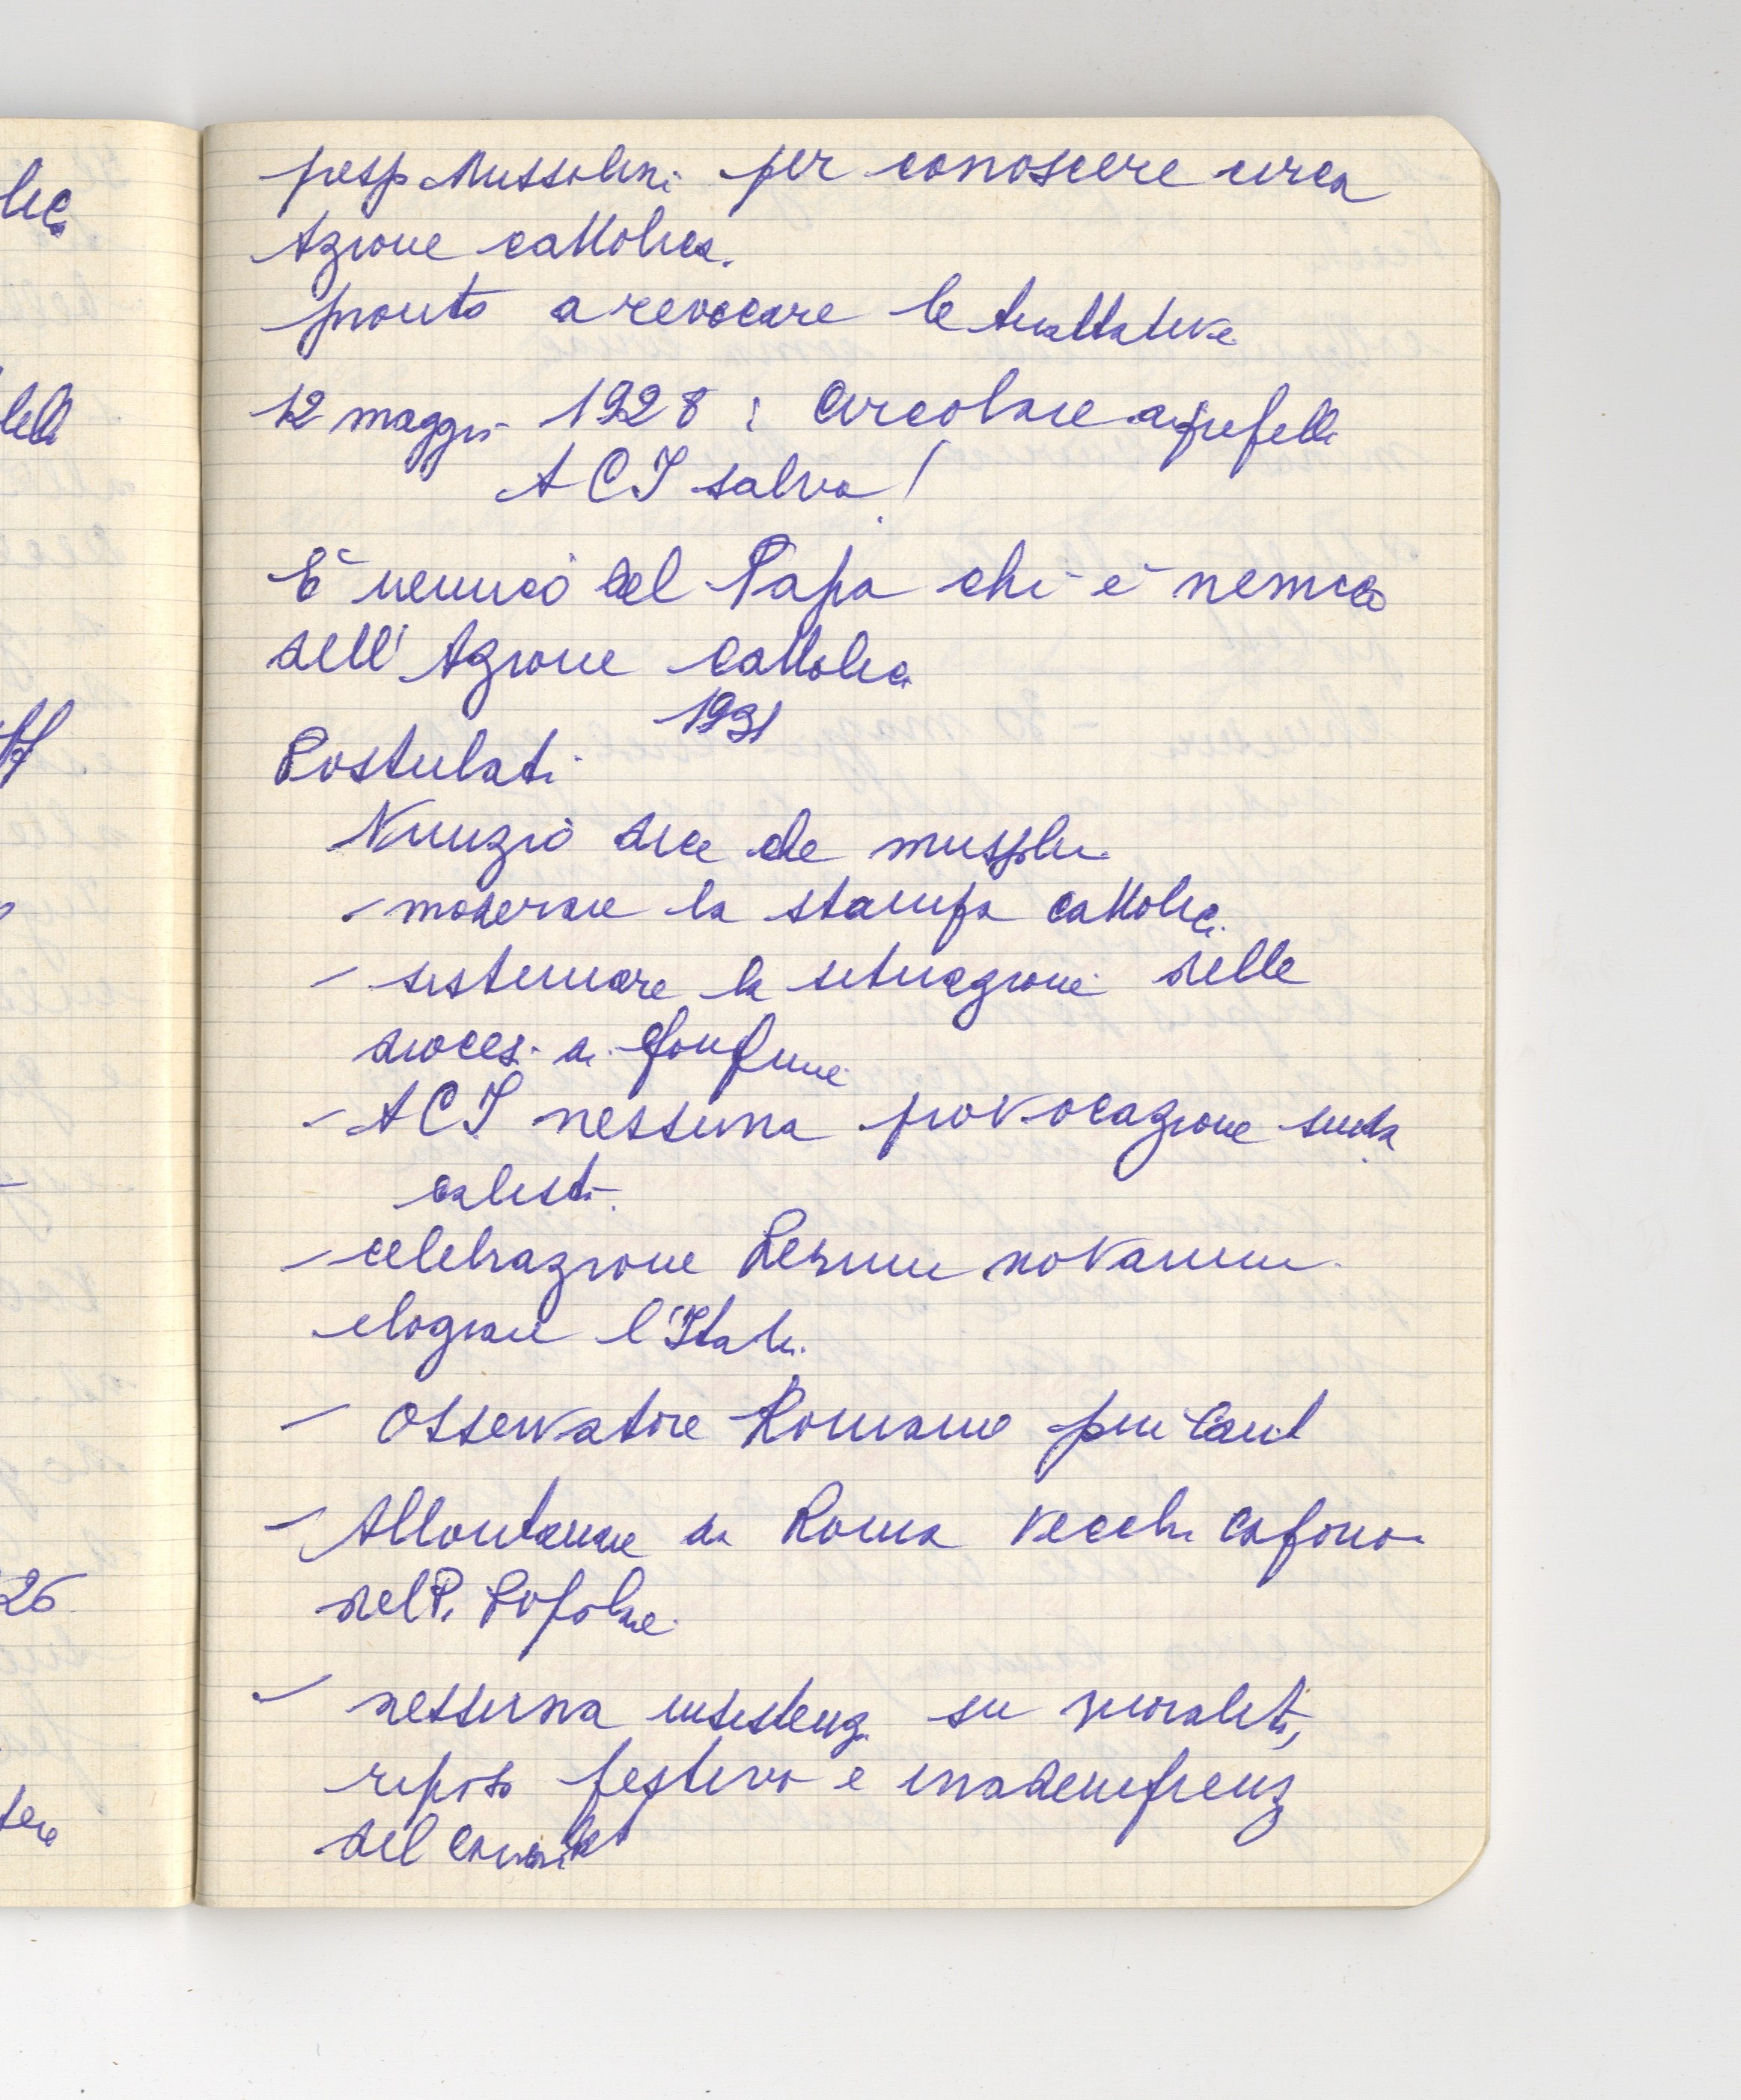 presso Mussolini per conoscere circa
Azione cattolica.
pronto a revocare le trattative
12 maggio 1928 : Circolare a prefetti
ACI salva!
È nemico del Papa chi è nemico
dell'Azione Cattolica
1931
Postulati
Nunzio dice che Mussolini
- moderare la stampa cattolica
- sistemare la situazione delle
diocesi di confine
- ACI nessuna provocazione sinda
calisti
- celebrazione Rerum novarum
elogiare l'Italia
- Osservatore Romano più caut
- Allontanare da Roma vecchi caporio
del P. Popolare
- nessuna insistenza su moralità,
riposo festivo e inadempienz
del